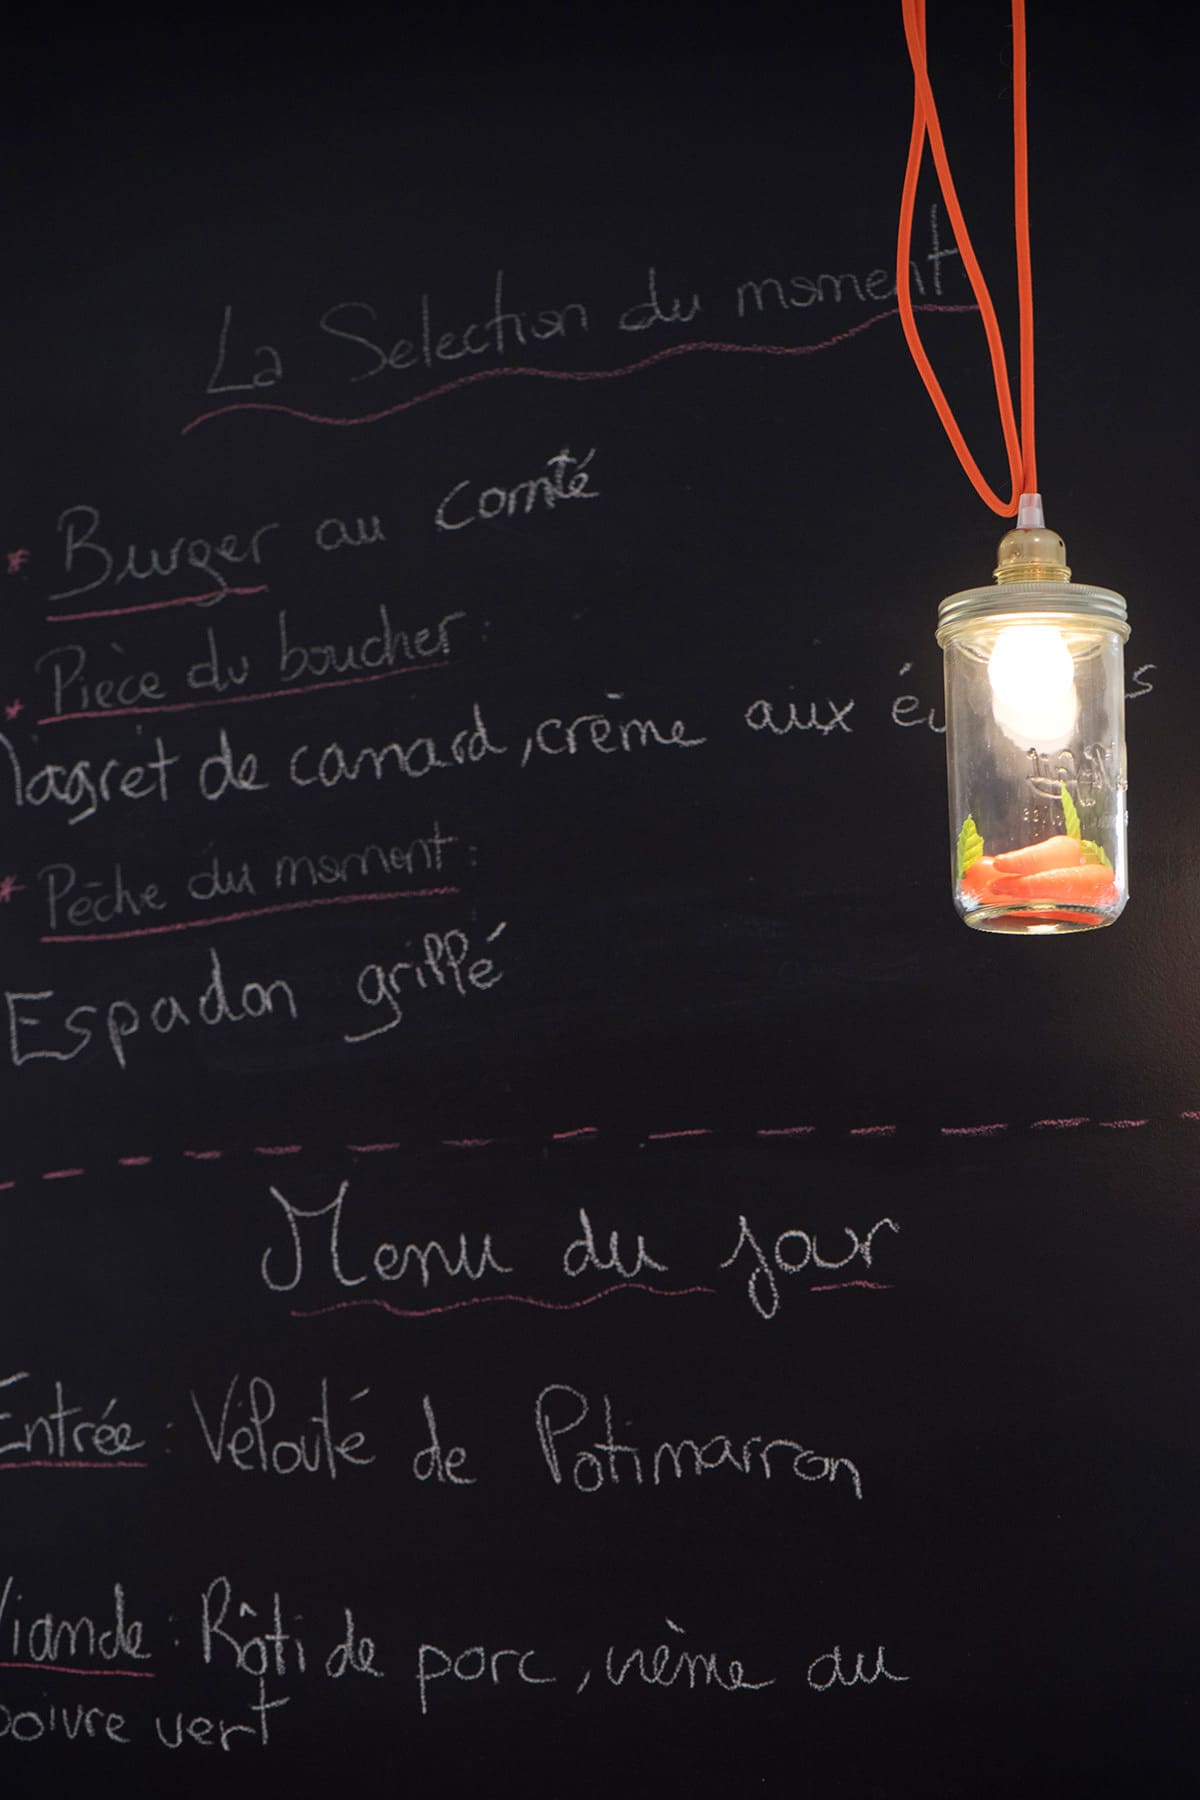 La Selection du moment
* Burger au comté
* Pièce du boucher:
Magret de canard, crème aux
* Pêche du moment:
Espadon grillé
Menu du jour
Entrée: Vélouté de Potimarron
Viande: Rôti de porc, crème au
poivre vert